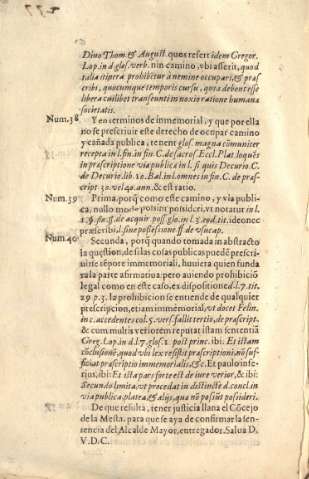 Diuo Thom. & August. quos refert idem Gregor.
Lop. in d. glos. verb. nin camino, vbi asserit, quod
talia itinera prohibetur à nemine occupari, & præs
cribi, quocumque temporis cursu, quòd deben tesse
libera cuilibet transeunti innoxio ratione humanæ
societatis.
Num. 38 Y en terminos de inmemorial, y que por ella
no se prescriuir este derecho de ocupar camino
y cañada publica, tenent glos. magna cómuniter
recepta in l. fin. in fin. C. de sacros. Eccl. Plat. loquēs
in præscriptione via publica in l. si quis Decurio. C.
de Decurio. lib. 10. Bal. in l. omnes in fin. C. de præs-
cript. 30. vel 40. ann. & est ratio.
Num. 39 Prima, porq̃ como este camino, y via publi-
ca, nullo modo possint possideri, vt notatur in l.
præscribi. l. sine possessione ff. de vsucap.
Num. 40 Secunda, porq̃ quando tomada in abstracto
la question, de si las cosas publicas puedē prescri-
uirse tēpore immemoriali, huuiera quien funda
ra la parte afirmatiua: pero auiendo prohibició
legal como en este caso, ex dispositione d. l. 7. tit.
29. p. 3. la prohibicion se entiende de qualquier
prescripcion, etiam immemorial, vt docet Felin.
in c. accedentes col. 5. vers. fallit tertio, de præscript.
& cum multis veriorem reputat istam sententiā
Greg. Lop. in d. l. 7. glos. 1. post princ. ibi: Et istam
cōclusionē, quod vbi lex resistit præscriptioni, nō suf-
ficiat præscriptio immemorialis, &c. Et paulo infe-
rius, ibi: Et ista pars forte est de iure verior, & ibi:
Secundo limita, vt procedat in distincte d. concl. in
via publica, platea, & alijs, quæ nō possūt possideri.
De que resulta, tener justicia llana el Cōcejo
de la Mesta, para que se aya de confirmar la sen-
tencia del Alcalde Mayor, entregador. Salua D.
V. D. C.